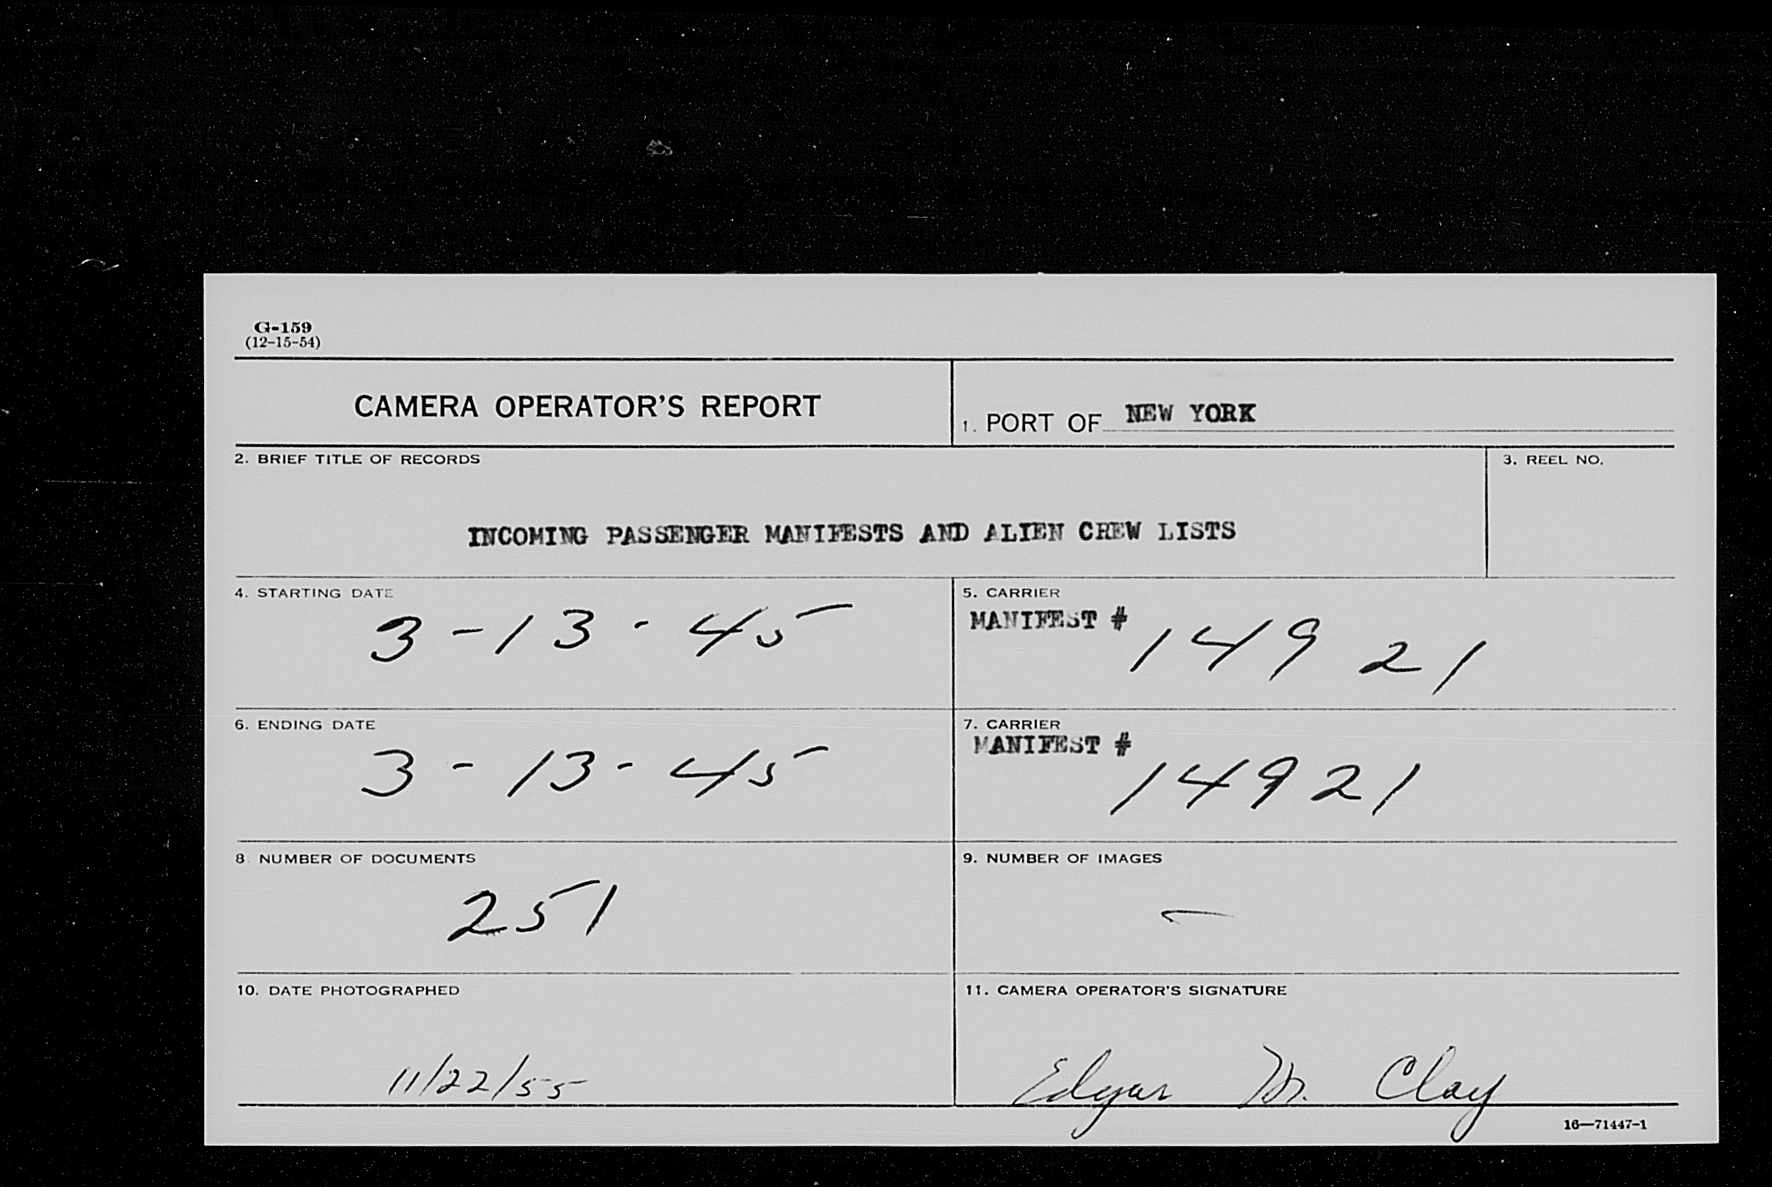 G-159
(12-15-54)
CAMERA OPERATOR'S REPORT
1. PORT OF NEW YORK
2. BRIEF TITLE OF RECORDS
3. REEL NO.
INCOMING PASSENGER MANIFESTS AND ALIEN CREW LISTS
4. STARTING DATE
3-13-45
5. CARRIER
MANIFEST # 14921
6. ENDING DATE
3-13-45
7. CARRIER
MANIFEST # 14921
8. NUMBER OF DOCUMENTS
251
9. NUMBER OF IMAGES
-
10. DATE PHOTOGRAPHED
11/22/55
11. CAMERA OPERATOR'S SIGNATURE
Edgar M. Clay
16—71447-1